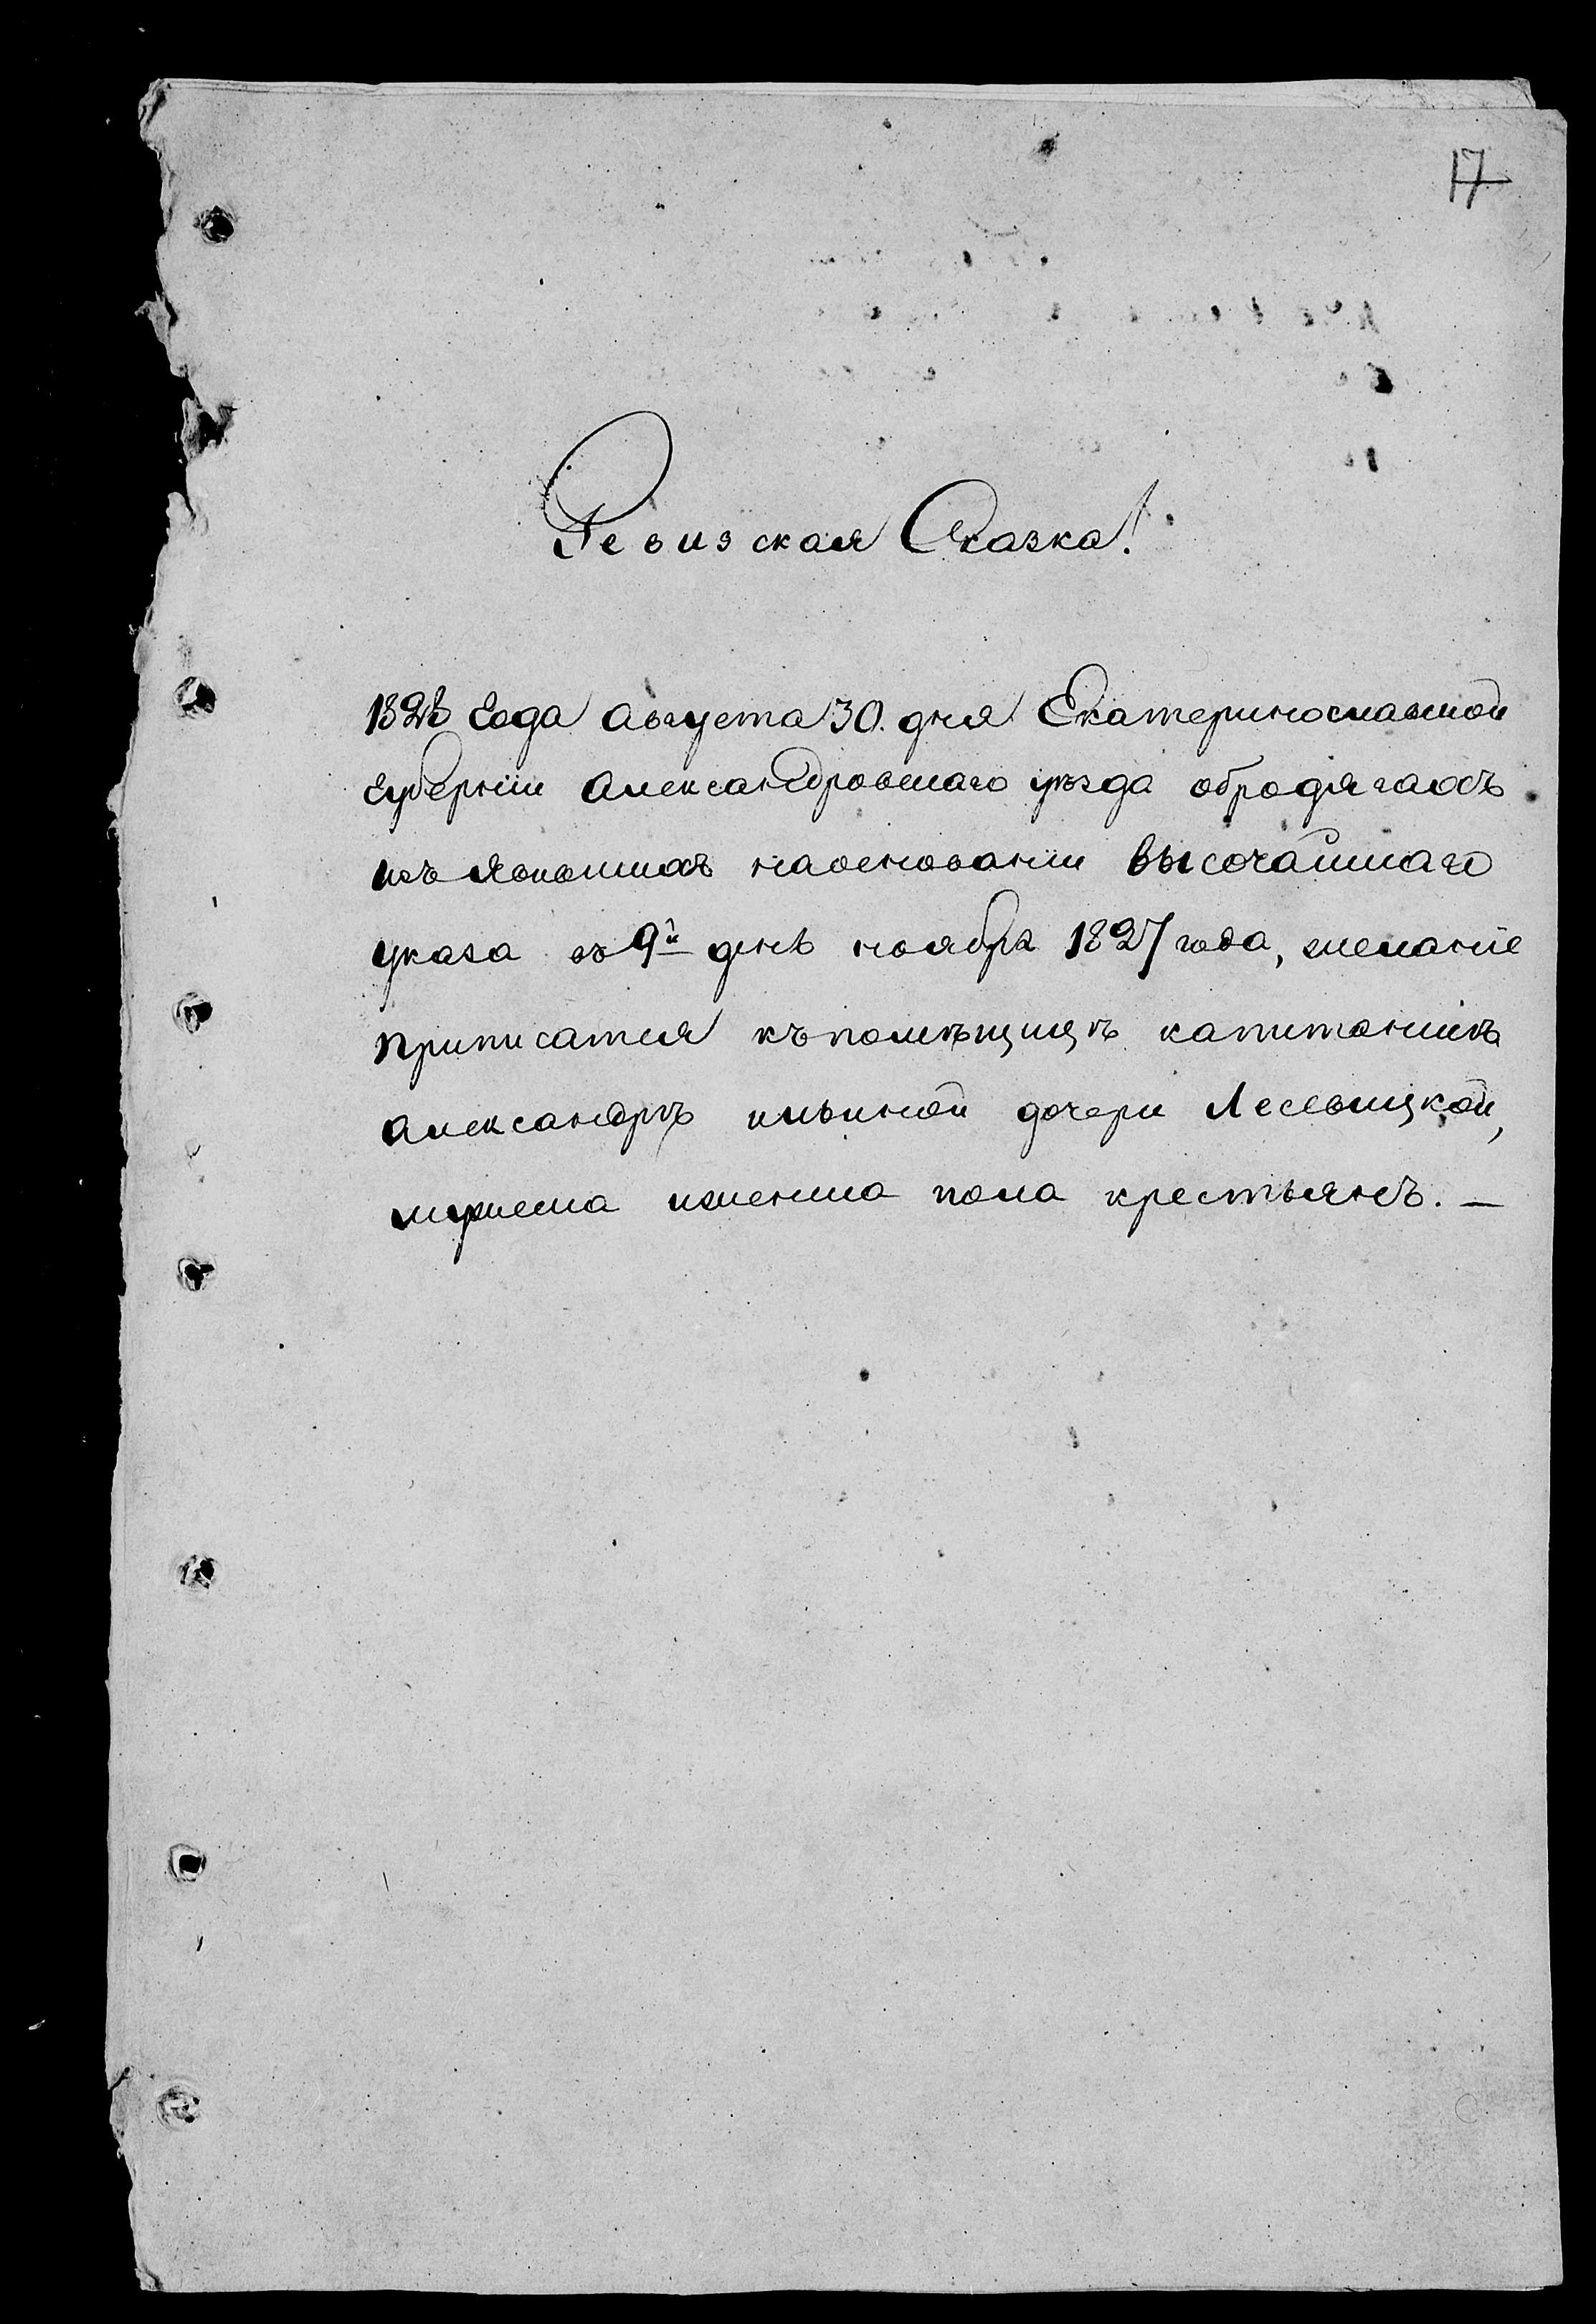 17
Ревизская Сказка!
1828 года августа 30. дня Екатеринославской
губернїи александровскаго уѣзда обродягахъ
изъявившихъ наосновании высочайшаго
указа въ 9й день ноября 1827 года, желанїе
приписатся къпомѣщицѣ капитаншѣ
александрѣ ильиной дочери Лесевицкой,
мужеска иженска пола крестьянъ. —